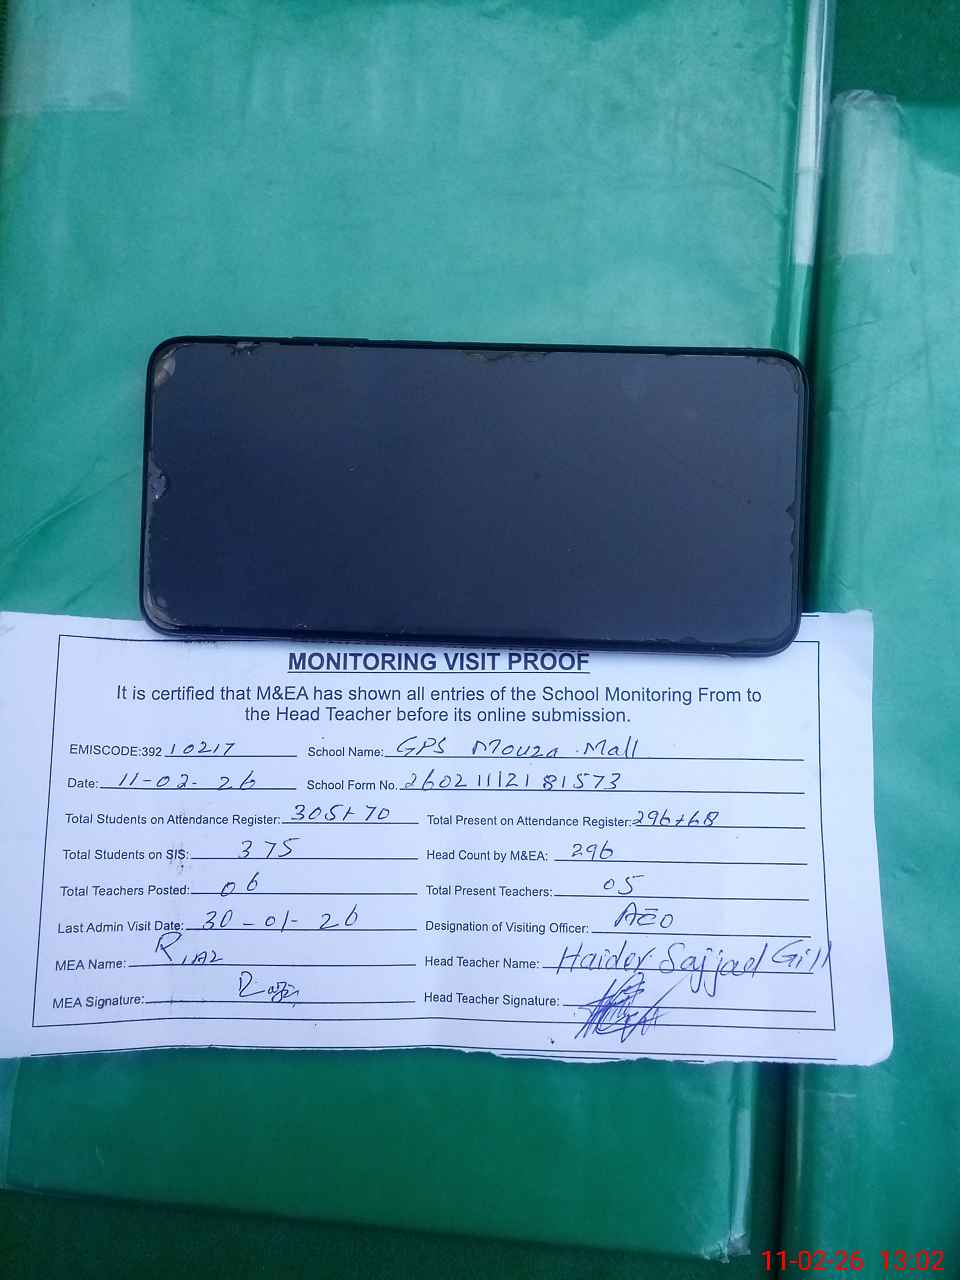 MONITORING VISIT PROOF
It is certified that M&EA has shown all entries of the School Monitoring From to
the Head Teacher before its online submission.
EMISCODE:392 10217 School Name: GPS Mouza Mall
Date: 11-02-26 School Form No. 26021112181573
Total Students on Attendance Register: 305+70 Total Present on Attendance Register: 296+68
Total Students on SIS: 375 Head Count by M&EA: 296
Total Teachers Posted: 06 Total Present Teachers: 05
Last Admin Visit Date: 30-01-26 Designation of Visiting Officer: AEO
MEA Name: Riaz Head Teacher Name: Haider Sajjad Gill
MEA Signature: Head Teacher Signature:
11-02-26 13:02